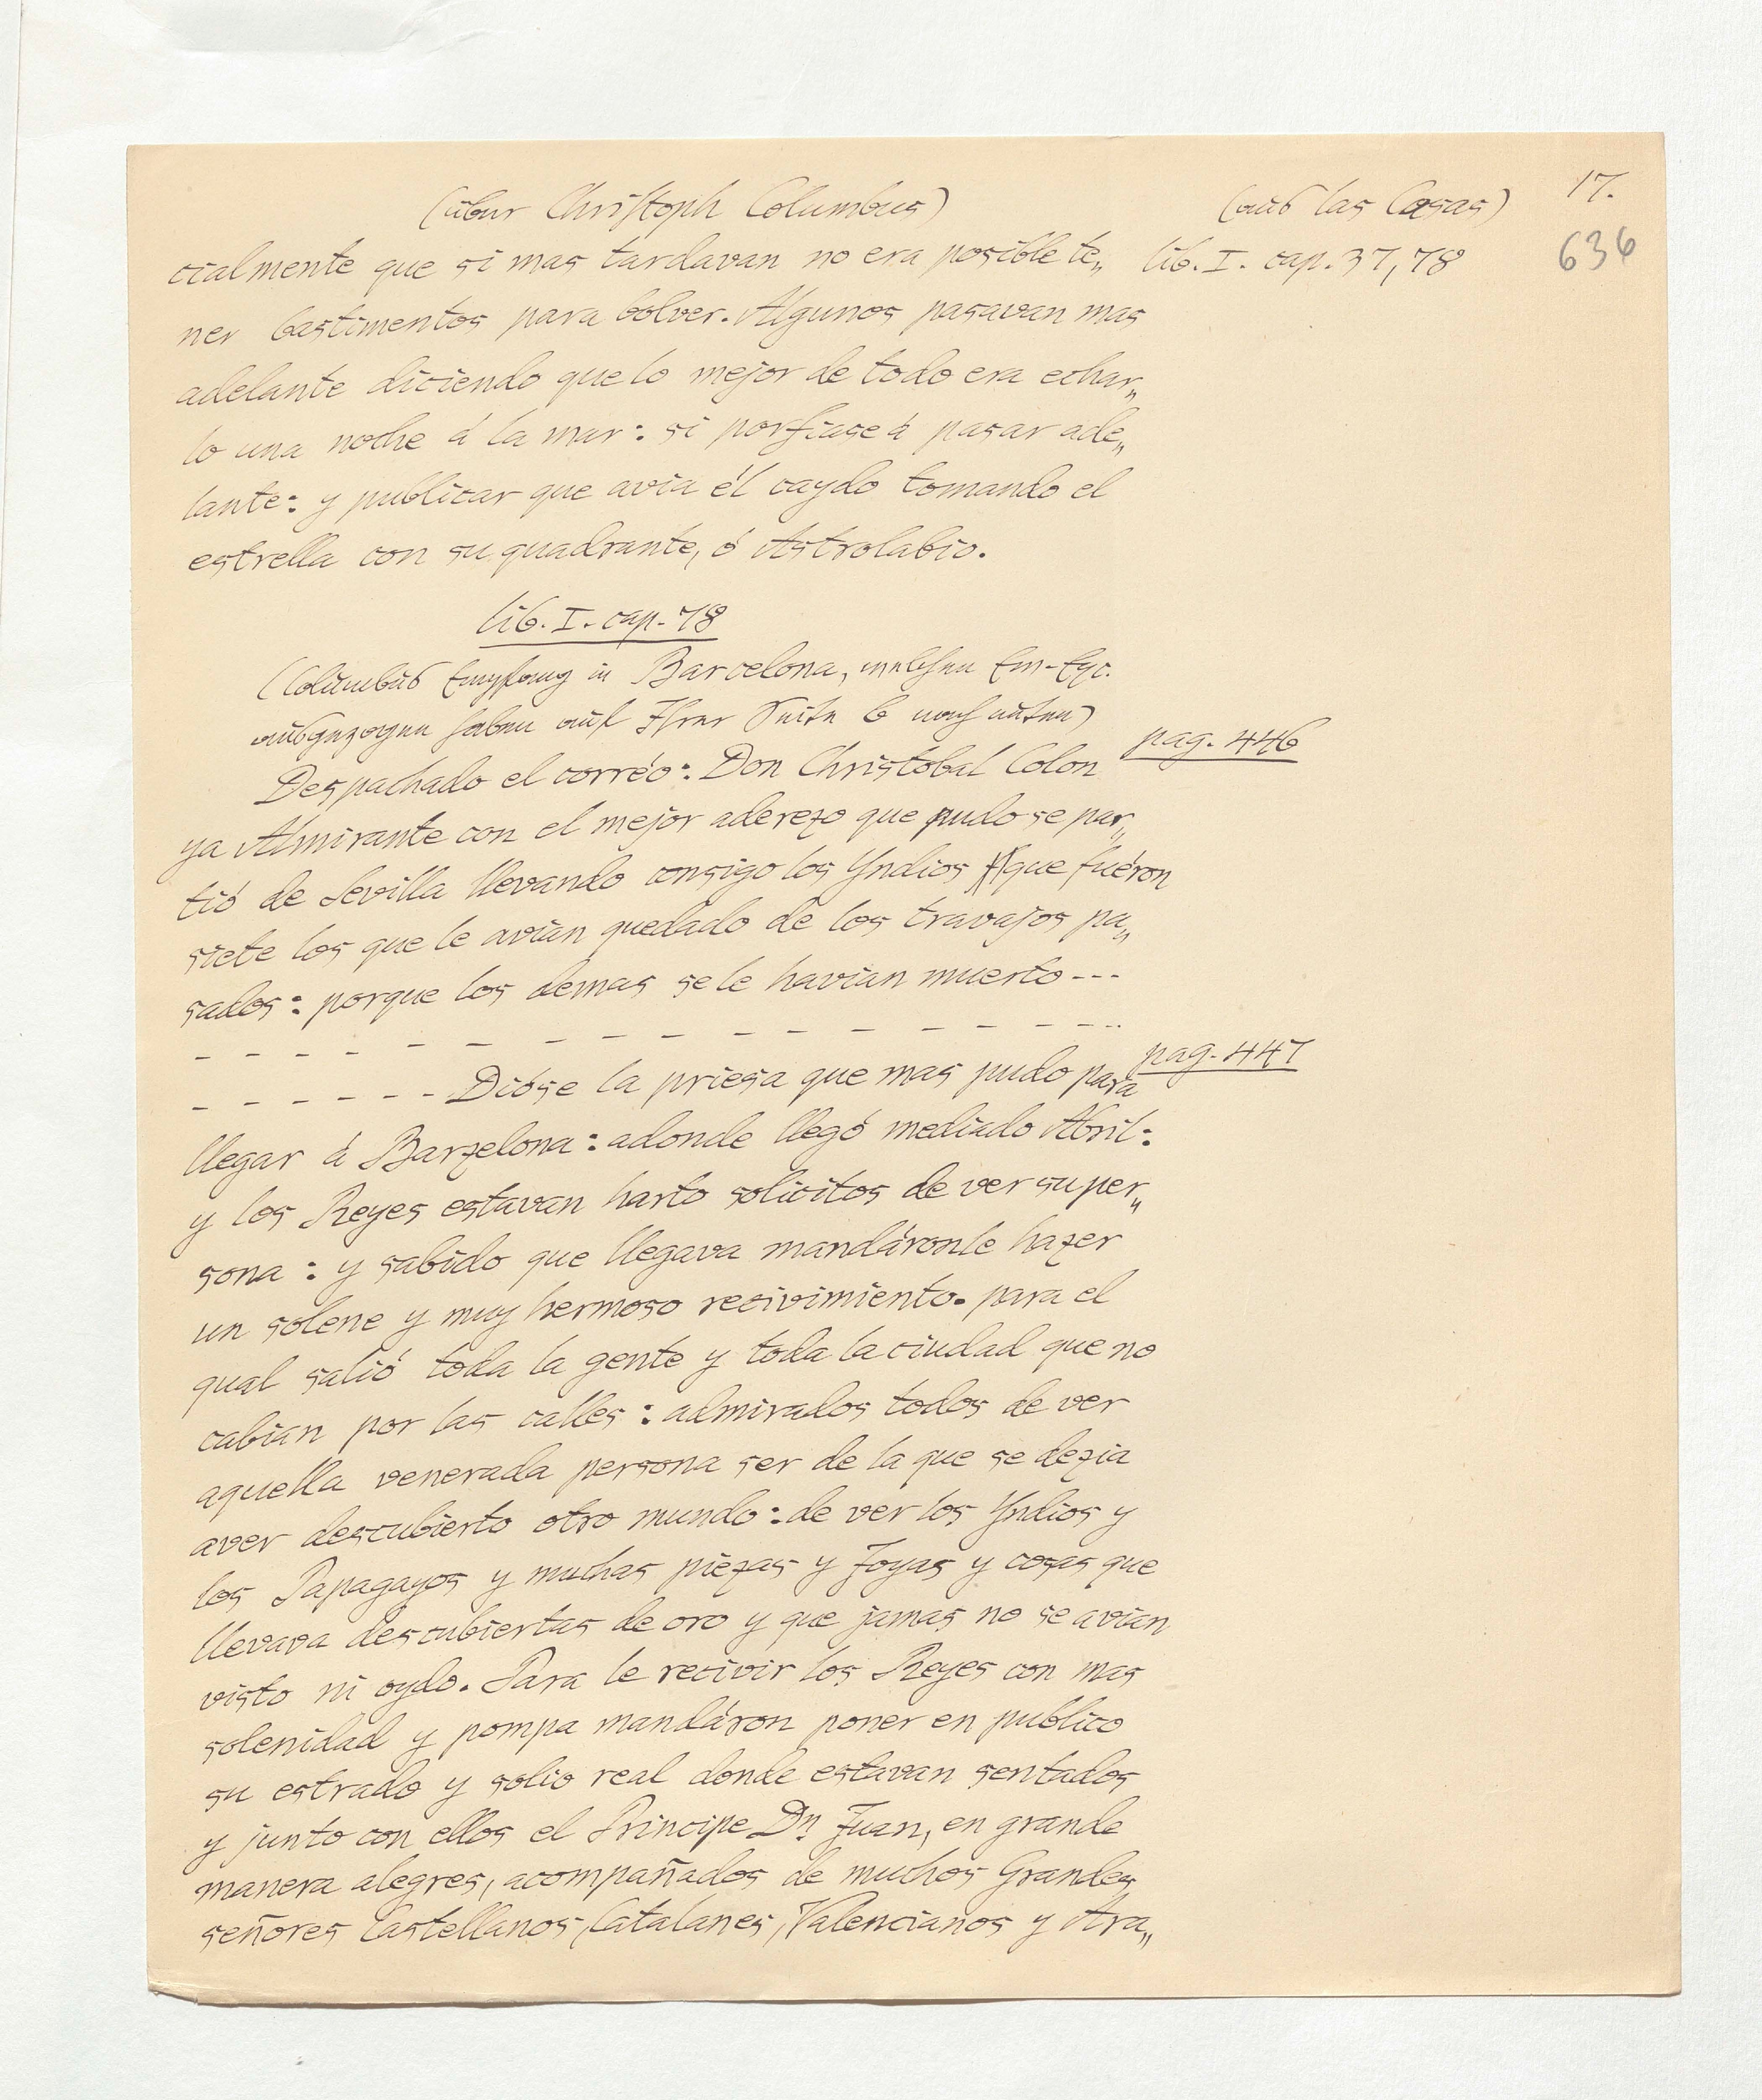 (über Christoph Columbus)
(aus las Casas)
17.
636
cialmente que si mas tardavan no era posible te„
lib. I. cap. 37, 78
ner bastimentos para bolver. Algunos pasavan mas
adelante diciendo que lo mejor de todo era echar„
lo una noche á la mar: si porfiase á pasar ade„
lante: y publicar que avia él caydo tomando el
estrella con su quadrante, ó Astrolabio.
lib. I. cap. 78
(Columbus Empfang in Barcelona, welchen Ew-Exc.
ausgezogen haben auf Ihrer Seite 6 nach unten)
pag. 446
Despachado el corréo: Don Christobal Colon
ya Almirante con el mejor aderezo que pudo se par„
tió de Sevilla llevando consigo los Yndios que fuéron
siete los que le avian quedado de los travajos pa„
sados: porque los demas se le havian muerto ---
- - - - - - - - - - - - - - - - -
pag. 447
- - - - - - Dióse la priesa que mas pudo para
llegar á Barzelona: adonde llegó mediado Abril:
y los Reyes estavan harto solicitos de ver su per„
sona: y sabido que llegava mandáronle hazer
un solene y muy hermoso recivimiento. para el
qual salió toda la gente y toda la ciudad que no
cabian por las calles: admirados todos de ver
aquella venerada persona ser de la que se dezia
aver descubierto otro mundo: de ver los Yndios y
los Papagayos y muchas piezas y Joyas y cosas que
llevava descubiertas de oro y que jamas no se avian
visto ni oydo. Para le recivir los Reyes con mas
solenidad y pompa mandáron poner en publico
su estrado y solio real donde estavan sentados
y junto con ellos el Principe Dn Juan, en grande
manera alegres, acompañados de muchos Grandes
señores Castellanos, Catalanes, Valencianos y Ara„